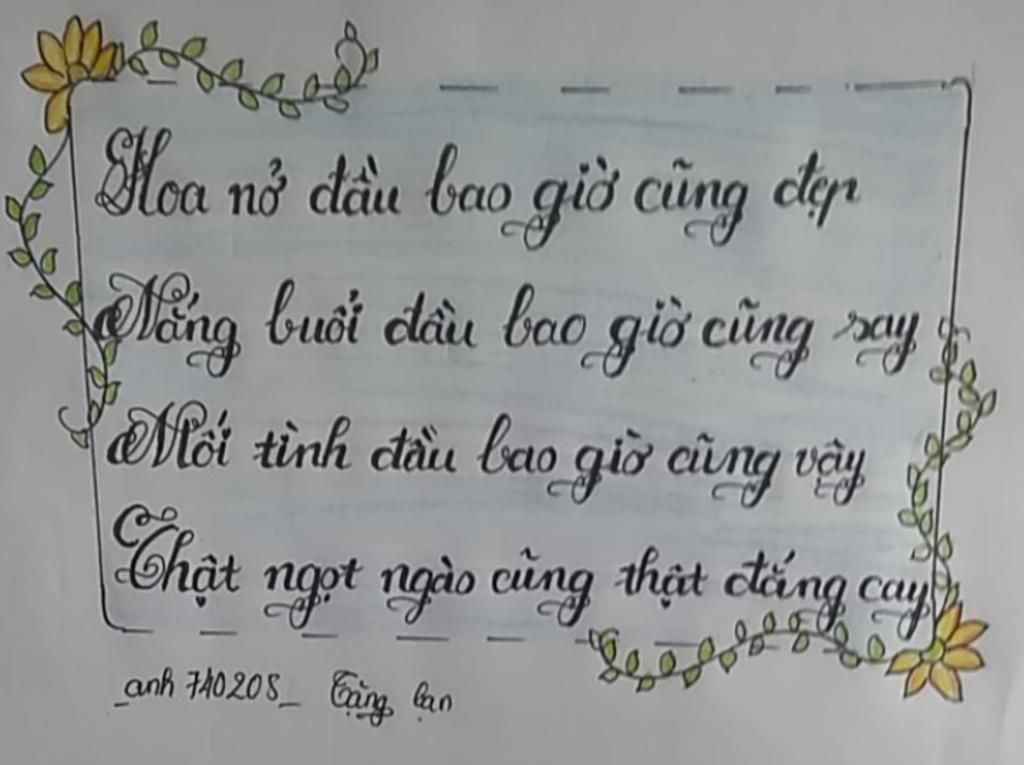 Hoa nở đầu bao giờ cũng đẹp
Nắng buổi đầu bao giờ cũng say
Mối tình đầu bao giờ cũng vậy
Thật ngọt ngào cũng thật đắng cay
_anh 740208_ Tặng bạn